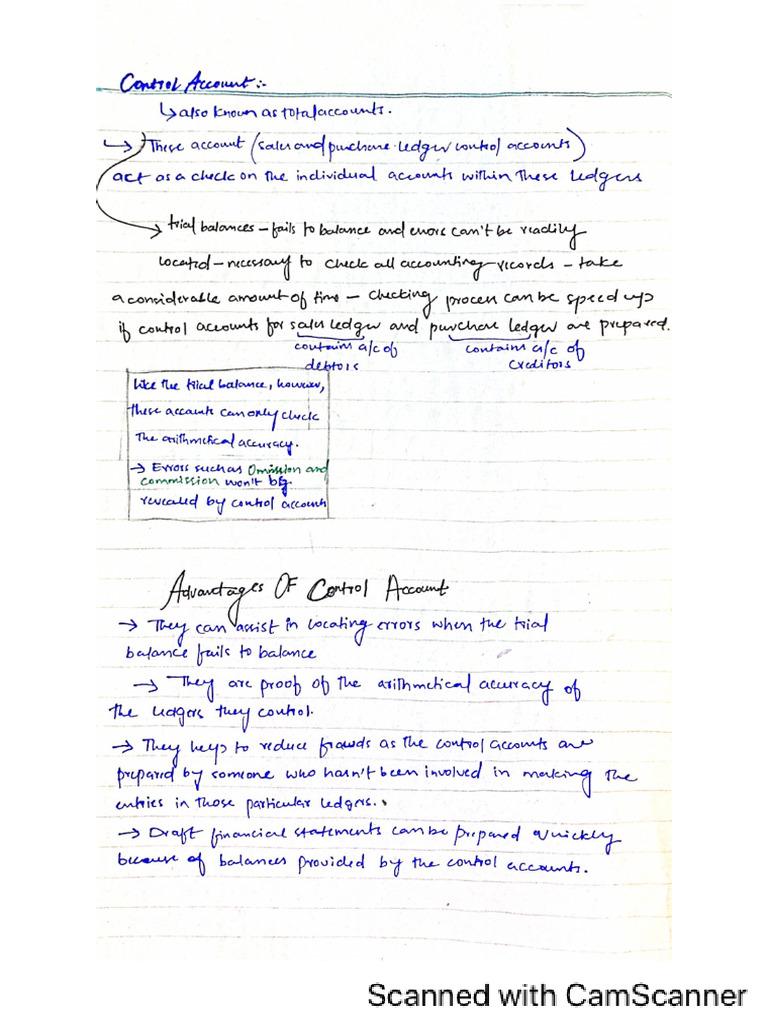 Control Account:-
↳ also known as total accounts.
↳ These account (sales and purchase ledger control accounts)
act as a check on the individual accounts within these ledgers
→ trial balances – fails to balance and errors can't be readily
located – necessary to check all accounting records – take
a considerable amount of time – checking process can be speed up
if control accounts for sales ledger and purchase ledger are prepared.
contains a/c of contains a/c of
debtors creditors
Like the trial balance, however,
these accounts can only check
the arithmetical accuracy.
→ Errors such as Omission and
commission won't be
revealed by control accounts
Advantages Of Control Account
→ They can assist in locating errors when the trial
balance fails to balance
→ They are proof of the arithmetical accuracy of
the ledgers they control.
→ They helps to reduce frauds as the control accounts are
prepared by someone who hasn't been involved in making the
entries in those particular ledgers.
→ Draft financial statements can be prepared quickly
because of balances provided by the control accounts.
Scanned with CamScanner